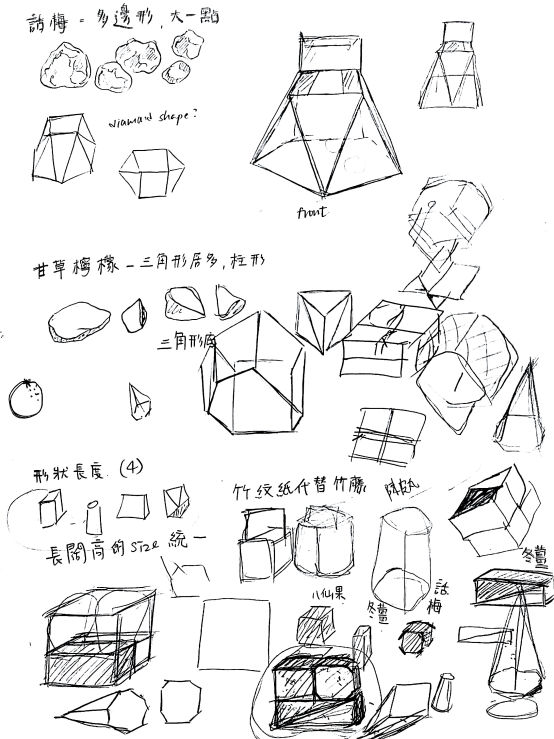 話梅 = 多邊形, 大一點
diamond shape?
front
甘草檸檬 - 三角形居多, 柱形
三角形底
形狀長度 (4)
長闊高的size 統一
竹紋紙代替竹籐
冬薑
八仙果
冬薑
話梅